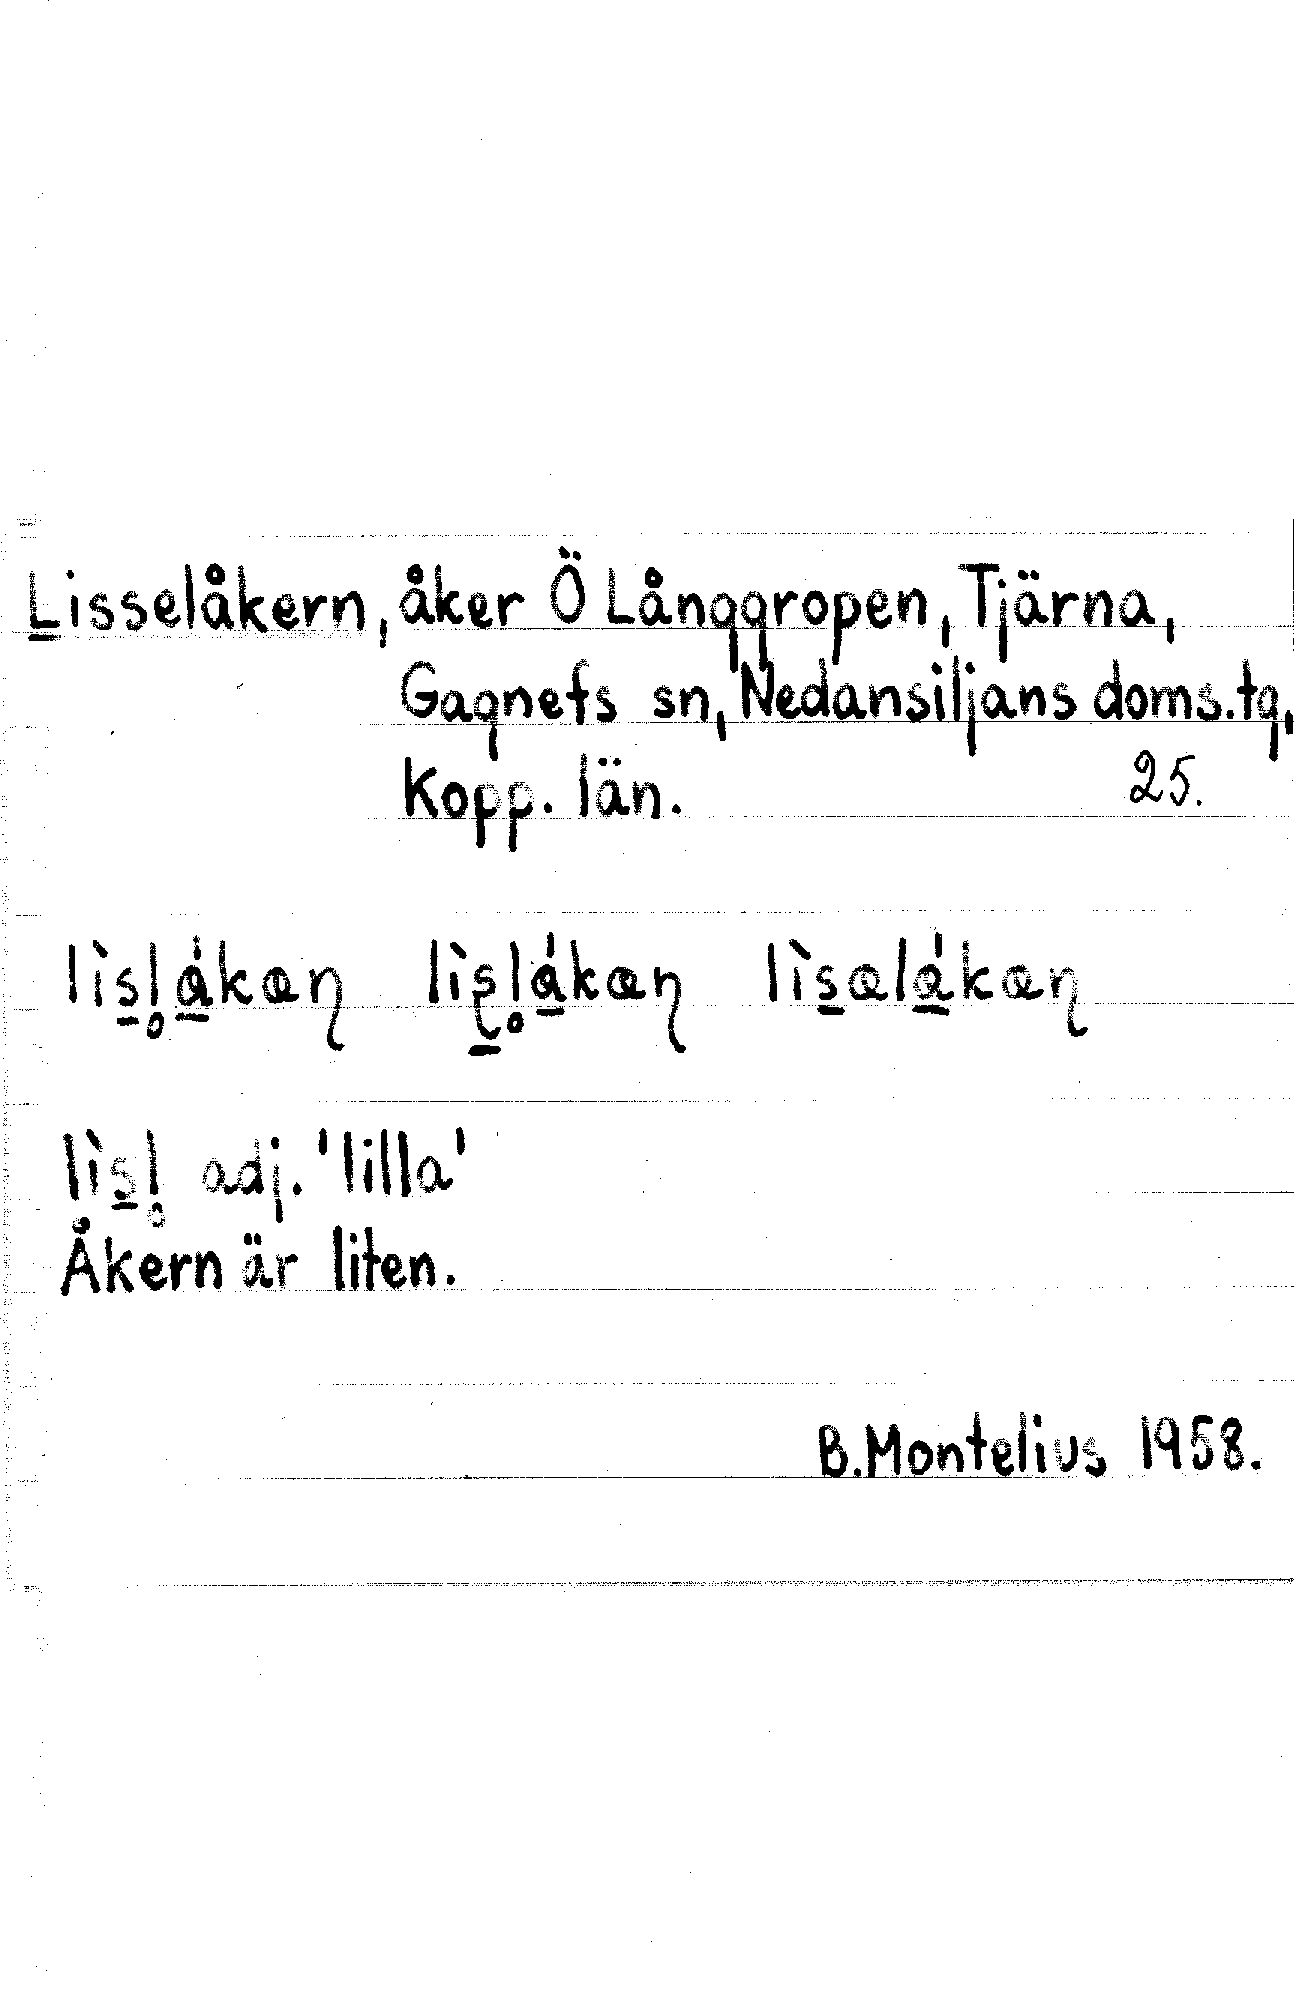 Lisselåkern, åker Ö Långgropen, Tjärna,
Gagnefs sn, Nedansiljans doms.tg,
Kopp. län. 25.
lìs̲l̥á̲kaɳ lìʂ̲l̥á̲kaɳ lìs̲alá̲kaɳ
lìs̲l̥ adj. 'lilla'
Åkern är liten.
B. Montelius 1958.